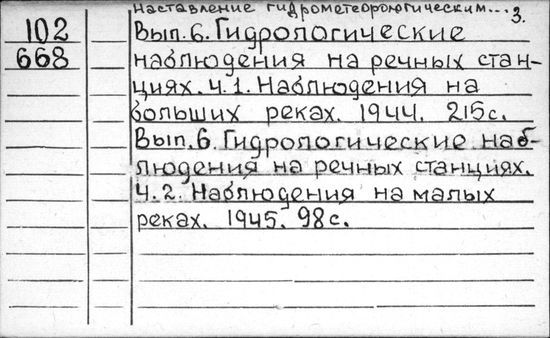 наставление гидрометеорологическим... 3.
102
668
Вып. 6. Гидрологические
наблюдения на речных стан-
циях. Ч. 1. Наблюдения на
больших реках. 1944. 215 с.
Вып. 6. Гидрологические наб-
людения на речных станциях.
Ч. 2. Наблюдения на малых
реках. 1945. 98 с.